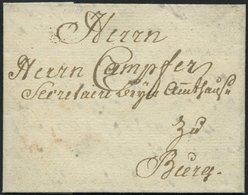 Herrn
Herrn Campfer
Secretaire beÿm Amthause
zu
Burg.